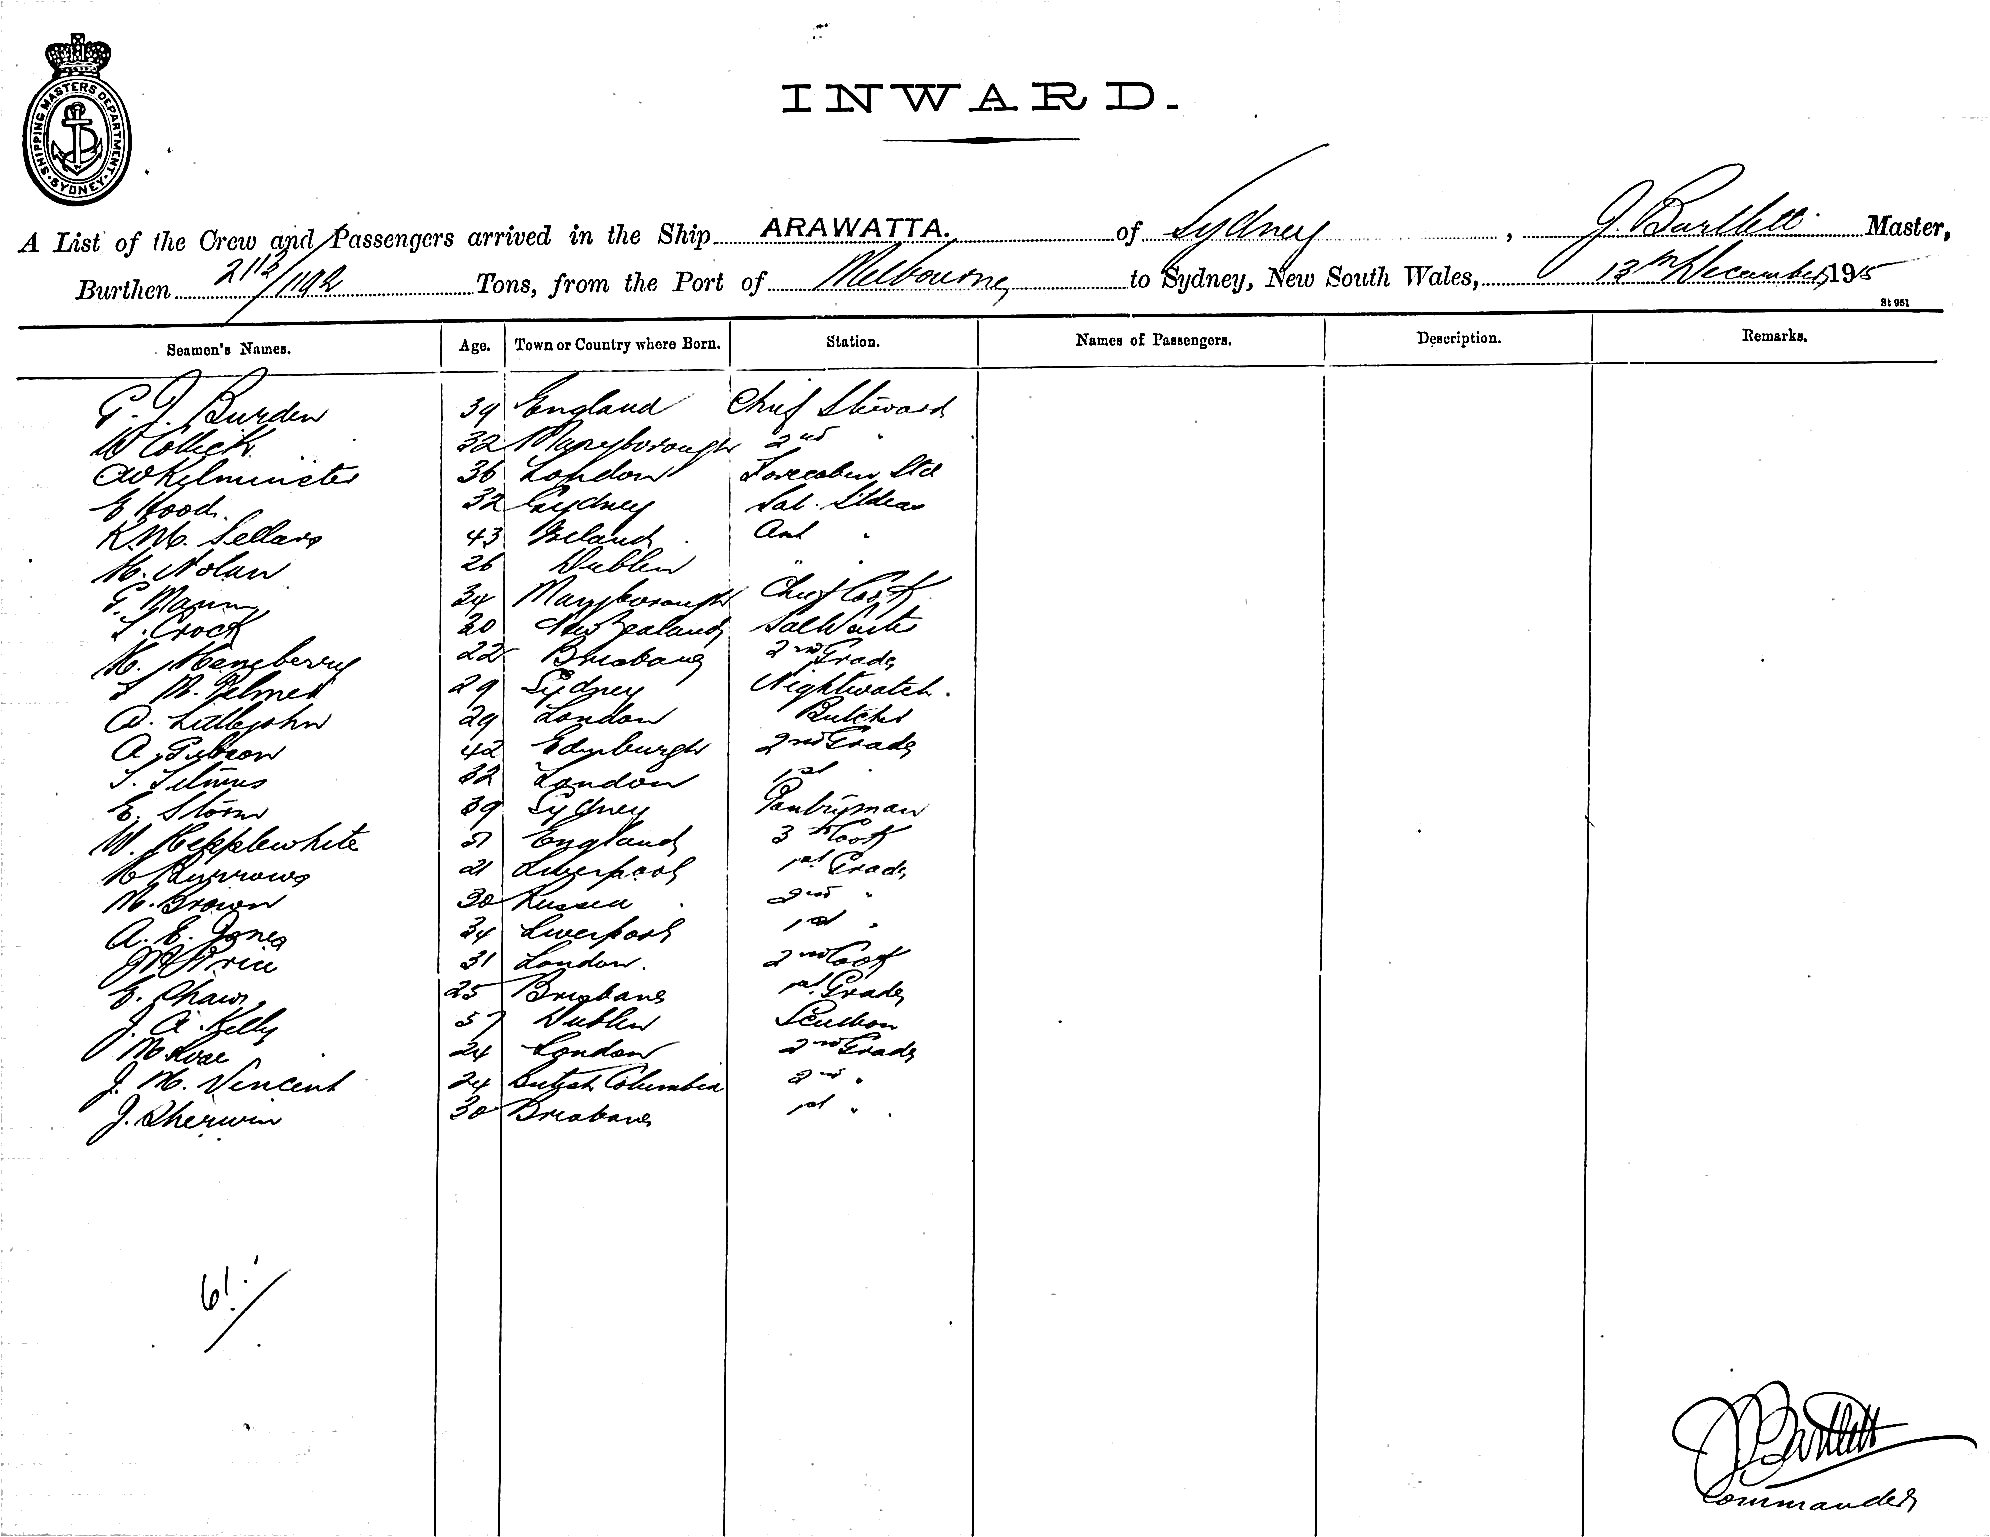 SHIPPING MASTERS DEPARTMENT. SYDNEY.
INWARD.
A List of the Crew and Passengers arrived in the Ship ARAWATTA. of Sydney, J. Bartlett Master,
Burthen 2113/1192 Tons, from the Port of Melbourne to Sydney, New South Wales, 13th December, 1915
St 951
Seamen's Names. Age. Town or Country where Born. Station. Names of Passengers. Description. Remarks.
G. J. Burden 39 England Chief Steward
W Collick 32 Maryborough 2nd "
AW Kelminster 36 London Forecabin Std
E Hood. 32 Sydney Sal. Stdess
K.M. Sellars 43 Ireland Ant "
M. Nolan 26 Dublin " "
G. Mann 34 Maryborough Chief Cook
Crock New Zealand Sal Waiter
H. 22 Brisbane 2nd Grade
29 Sydney Nightwatch.
A. Littlejohn 29 London Butcher
A. Gibson 42 Edinburgh 2nd Grade
32 London 1st "
E. Storm 39 Sydney Pantryman
W. Hepplewhite England 3rd Cook
H Burrows 21 Liverpool 1st Grade
M. Brown 30 Russia 2nd "
A. E. Jones 34 Liverpool 1st "
Price 31 London. 2nd Cook
E. Shaw 25 Brisbane 1st Grade
J. A. Kelly 57 Dublin
24 London 2nd Grade
J. M. Vincent 24 British Columbia 2nd "
J. Sherwin 30 Brisbane 1st "
61.
J Bartlett
Commander